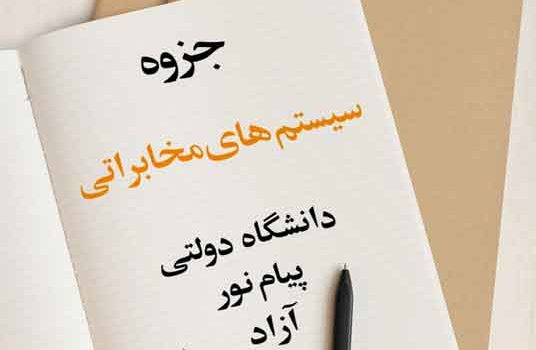 جزوه
سیستم های مخابراتی
دانشگاه دولتی
پیام نور
آزاد